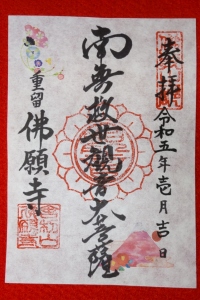 奉拝
令和五年壱月吉日
南無救世観音大菩薩
重留
佛願寺